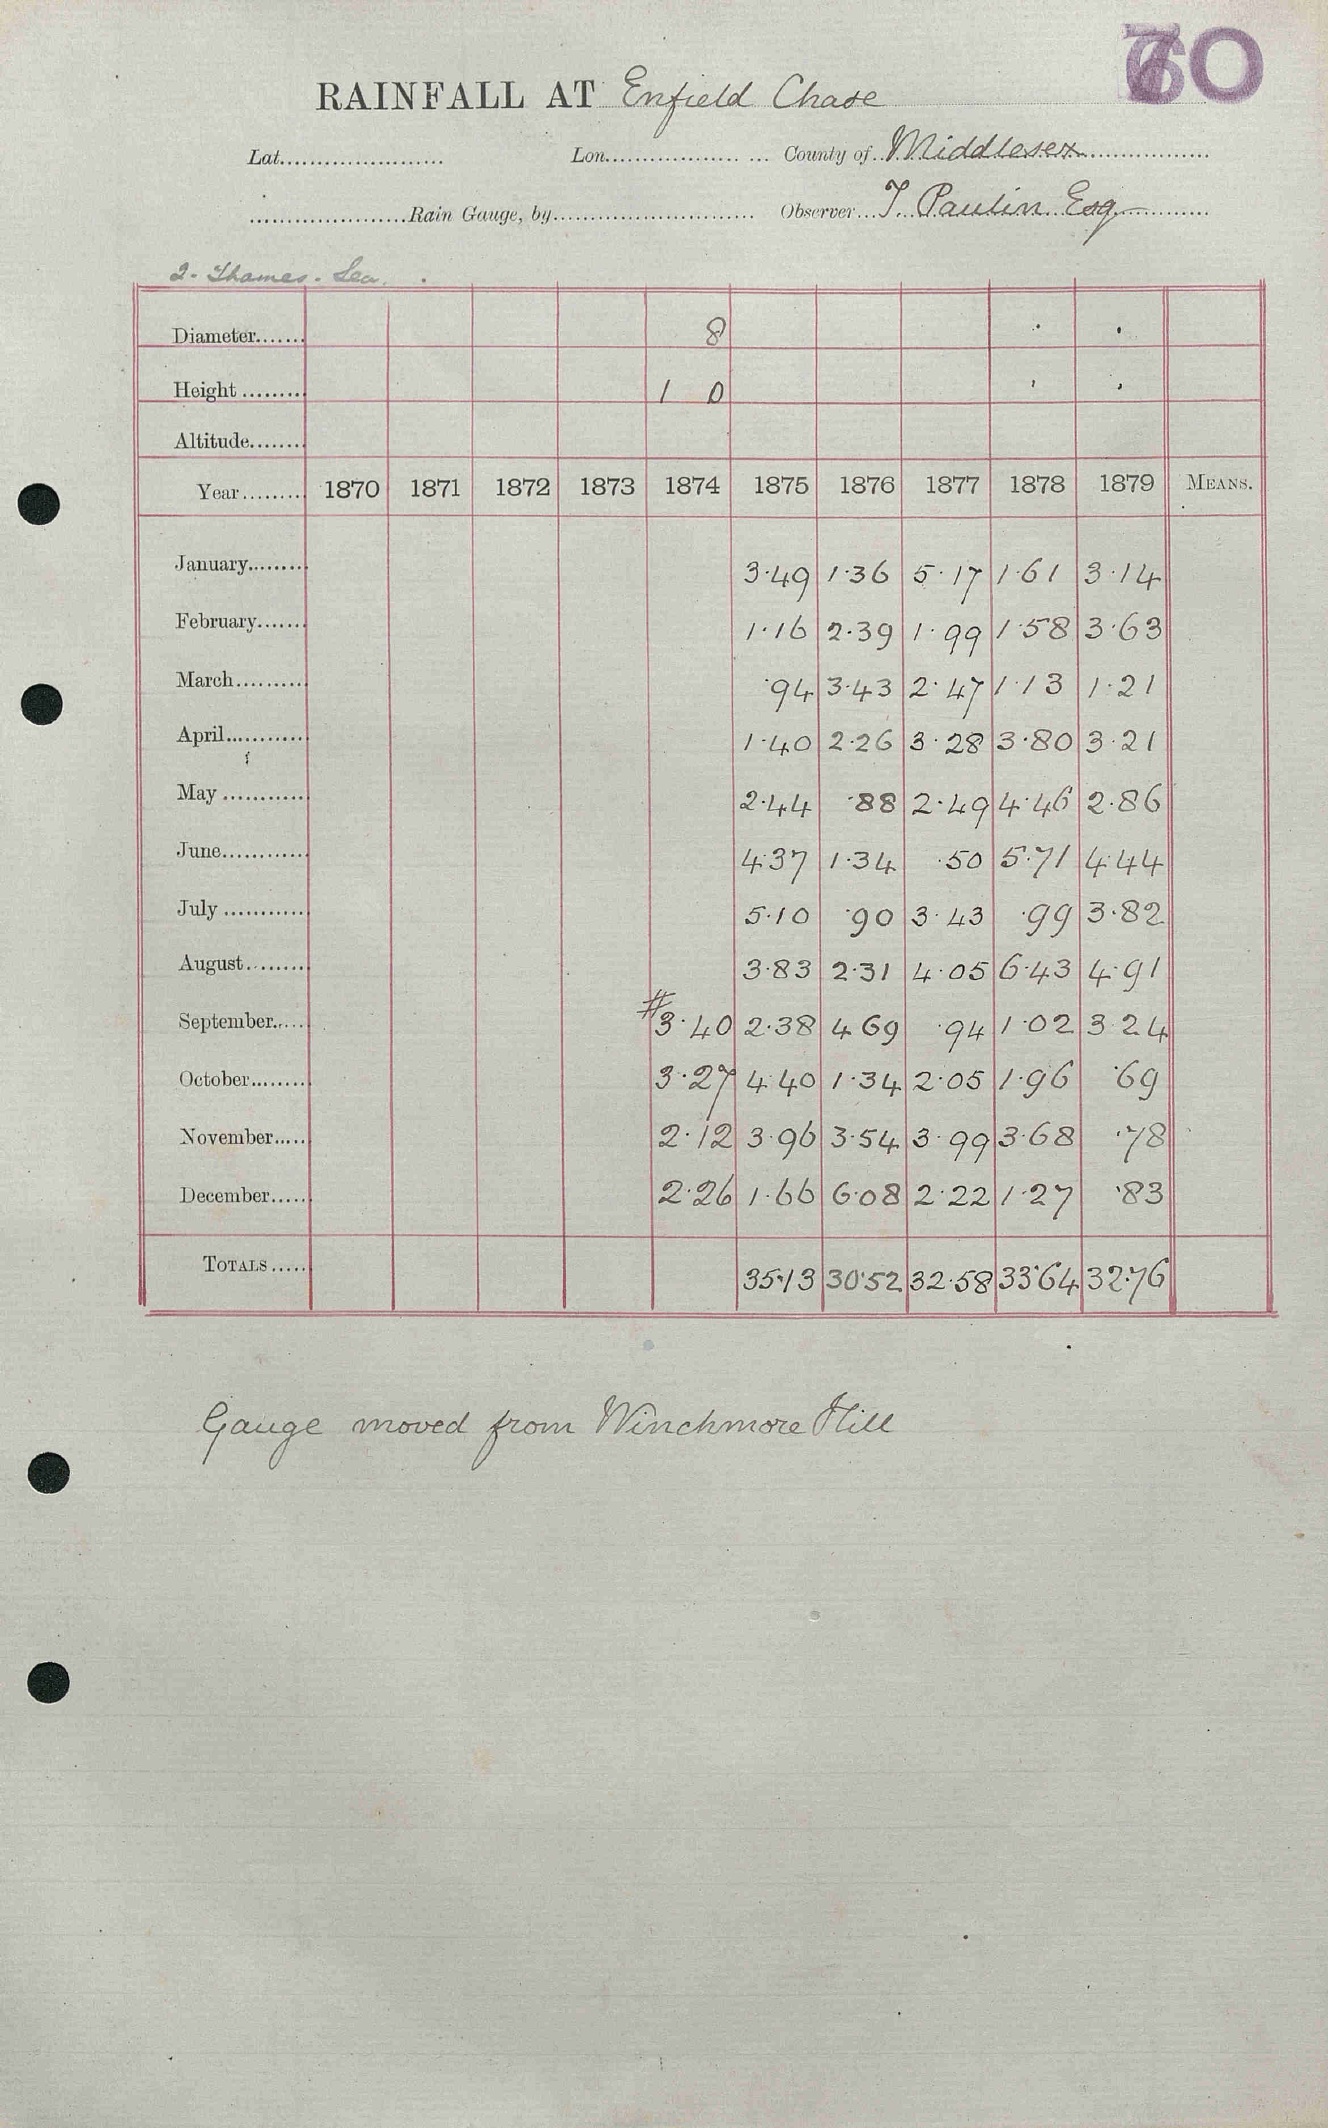 70
RAINFALL AT Enfield Chase
Lat...................... Lon................... ... County of Middlesex
......................Rain Gauge, by........................... Observer T. Paulin Esq
2. Thames. Lea.
Diameter....... 8
Height ......... 1 0
Altitude........
Year......... 1870 1871 1872 1873 1874 1875 1876 1877 1878 1879 MEANS.
January......... 3·49 1·36 5·17 1·61 3·14
February....... 1·16 2·39 1·99 1·58 3·63
March.......... ·94 3·43 2·47 1·13 1·21
April............ 1·40 2·26 3·28 3·80 3·21
May ............ 2·44 ·88 2·49 4·46 2·86
June............ 4·37 1·34 ·50 5·71 4·44
July ............ 5·10 ·90 3·43 ·99 3·82
August......... 3·83 2·31 4·05 6·43 4·91
September...... #3·40 2·38 4·69 ·94 1·02 3·24
October........ 3·27 4·40 1·34 2·05 1·96 ·69
November..... 2·12 3·96 3·54 3·99 3·68 ·78
December..... 2·26 1·66 6·08 2·22 1·27 ·83
TOTALS..... 35·13 30·52 32·58 33·64 32·76
Gauge moved from Winchmore Hill